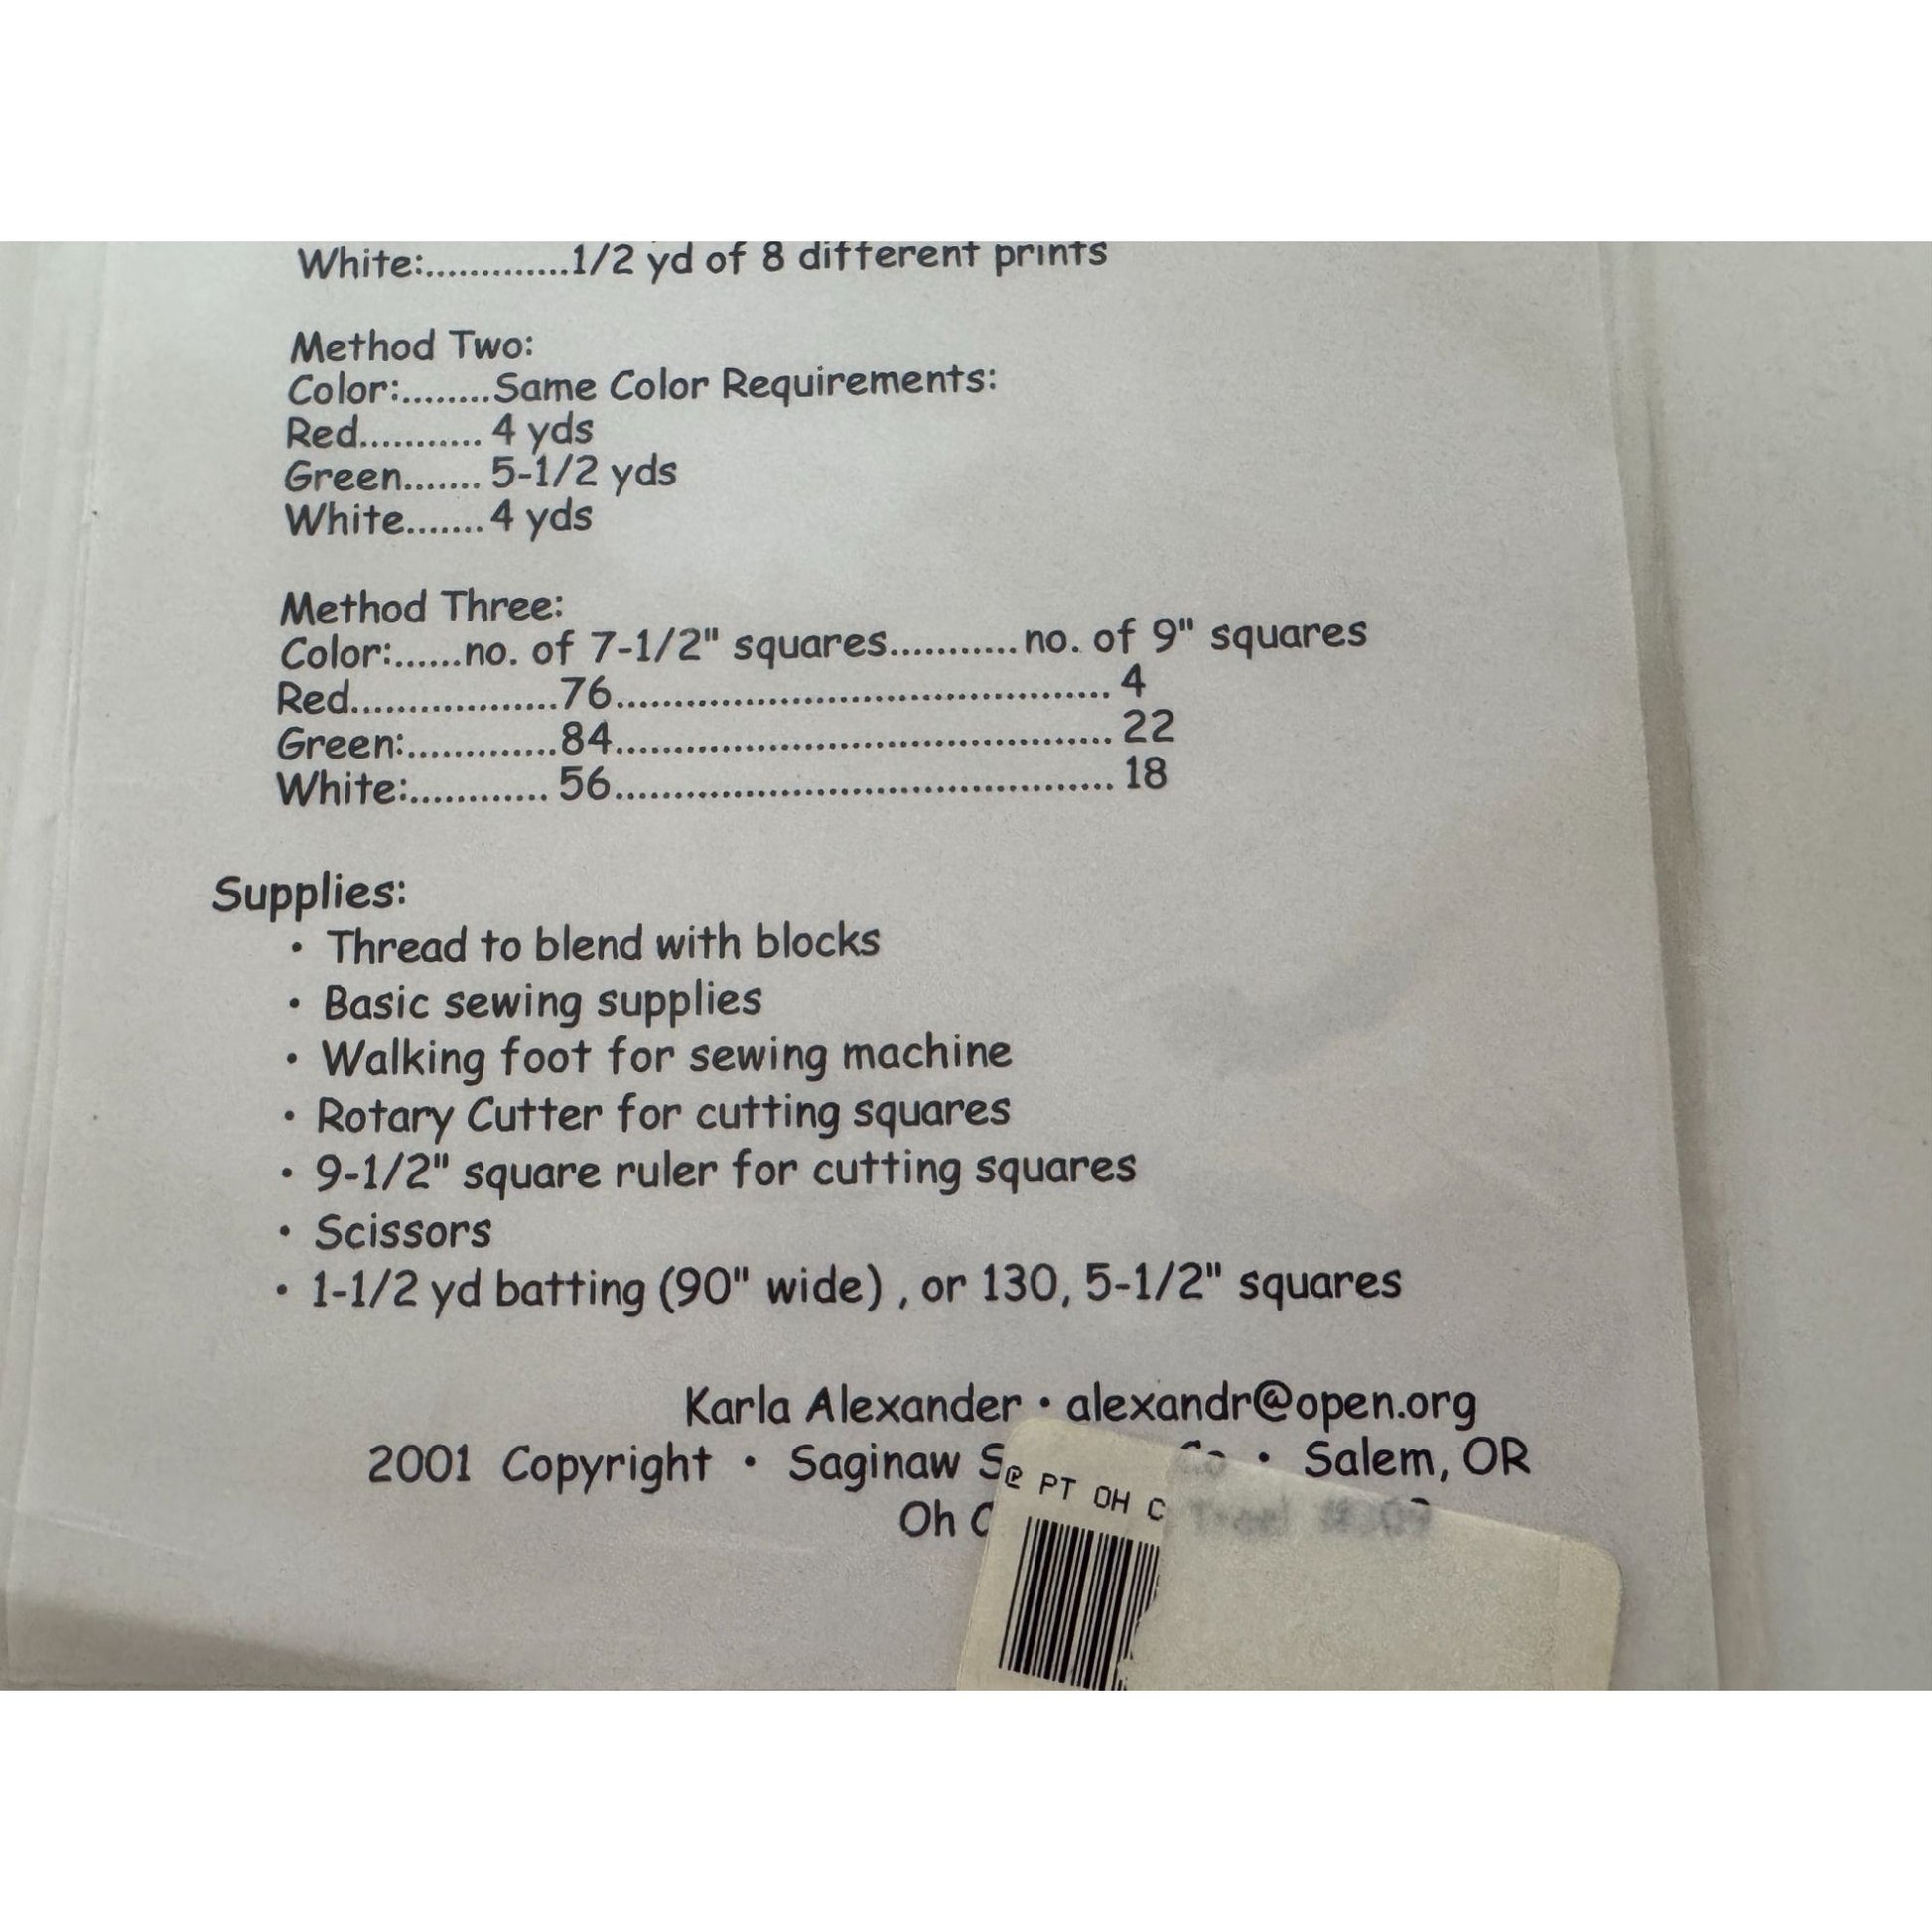 White:.............1/2 yd of 8 different prints
Method Two:
Color:........Same Color Requirements:
Red........... 4 yds
Green....... 5-1/2 yds
White....... 4 yds
Method Three:
Color:......no. of 7-1/2" squares...........no. of 9" squares
Red..................76........................................... 4
Green:.............84........................................... 22
White:............ 56........................................... 18
Supplies:
• Thread to blend with blocks
• Basic sewing supplies
• Walking foot for sewing machine
• Rotary Cutter for cutting squares
• 9-1/2" square ruler for cutting squares
• Scissors
• 1-1/2 yd batting (90" wide) , or 130, 5-1/2" squares
Karla Alexander • alexandr@open.org
2001 Copyright • Saginaw S Co • Salem, OR
Oh
PT OH C